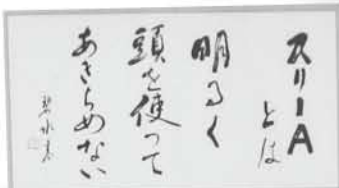 スリーA
とは
明るく
頭を使って
あきらめない